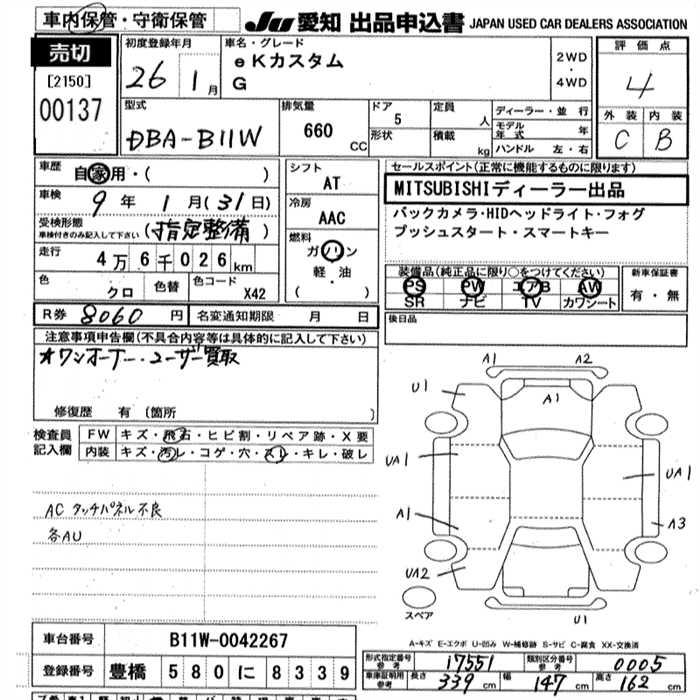 車内保管・守衛保管
JU 愛知 出品申込書 JAPAN USED CAR DEALERS ASSOCIATION
売切
[2150]
00137
初度登録年月
26 1月
車名・グレード
eKカスタム
G
2WD
・
4WD
評価点
4
外装 内装
C B
型式
DBA-B11W
排気量
660 CC
ドア
5
形状
定員
人
積載
kg
ディーラー・並行
モデル年式 年
ハンドル 左・右
車歴
自家用・( )
車検
9年 1月(31日)
受検形態
車検付きのみ記入して下さい
(指定整備)
走行
4万6千026km
色
クロ
色替
色コード
X42
シフト
AT
冷房
AAC
燃料
ガソリン
軽・油
( )
セールスポイント(正常に機能するものに限ります)
MITSUBISHIディーラー出品
バックカメラ・HIDヘッドライト・フォグ
プッシュスタート・スマートキー
装備品(純正品に限り○をつけてください)
PS PW エアB AW
SR ナビ TV カワシート
新車保証書
有・無
R券 8060円 名変通知期限 月 日
後日品
注意事項申告欄(不具合内容等は具体的に記入して下さい)
★ワンオーナー・ユーザー買取
修復歴 有 (箇所 )
検査員
記入欄
FW キズ・飛石・ヒビ割・リペア跡・X要
内装 キズ・汚レ・コゲ・穴・スレ・キレ・破レ
ACタッチパネル不良
各AU
A1 A2
U1 A1
UA1 UA1
A1 A3
UA2
スペア
U1
A-キズ E-エクボ U-凹み W-補修跡 S-サビ C-腐食 XX-交換済
車台番号 B11W-0042267
登録番号 豊橋 580に8339
形式指定番号
参考
17551
類別区分番号
参考
0005
車庫証明用
参考
長さ 339cm 幅 147cm 高さ 162cm